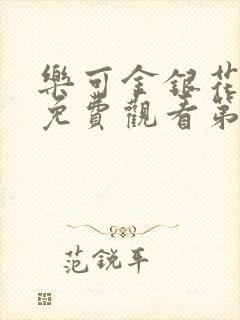 樂可金銀花
免費觀看第
范銳平